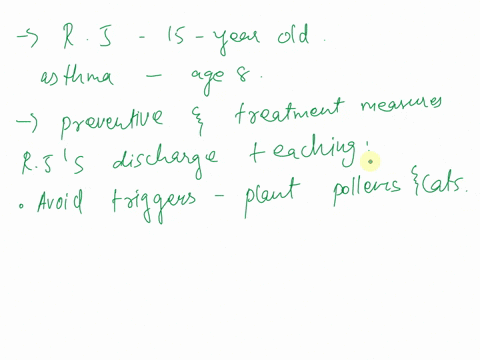 → R.J - 15-year old.
asthma - age 8.
→ preventive & treatment measures
R.J's discharge teaching:
• Avoid triggers - plant pollens & Cats.